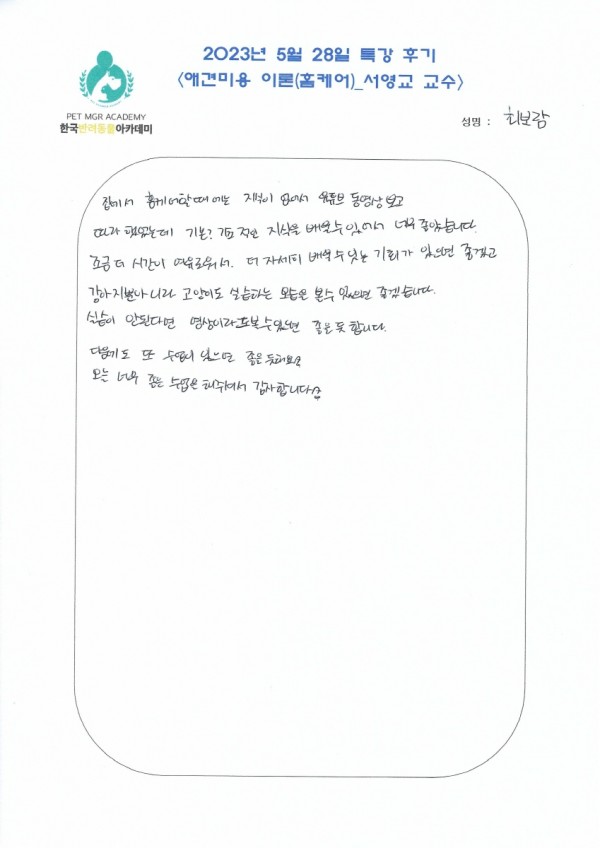 2023년 5월 28일 특강 후기
<애견미용 이론(홈케어)_서영교 교수>
PET MGR ACADEMY
한국반려동물아카데미
성명 : 최보람
집에서 홈케어할때에는 지식이 없어서 유튜브 동영상 보고
따라 했었는데 기본? 적인 지식을 배울수 있어서 너무 좋았습니다.
조금 더 시간이 여유로워서. 더 자세히 배울수 있는 기회가 있으면 좋겠고
강아지뿐아니라 고양이도 실습하는 모습을 볼수 있으면 좋겠습니다.
실습이 안된다면 영상이라도 볼수있으면 좋을듯 합니다.
다음에도 또 수업이 있으면 좋을듯해요
오늘 너무 좋은 수업을 해주셔서 감사합니다